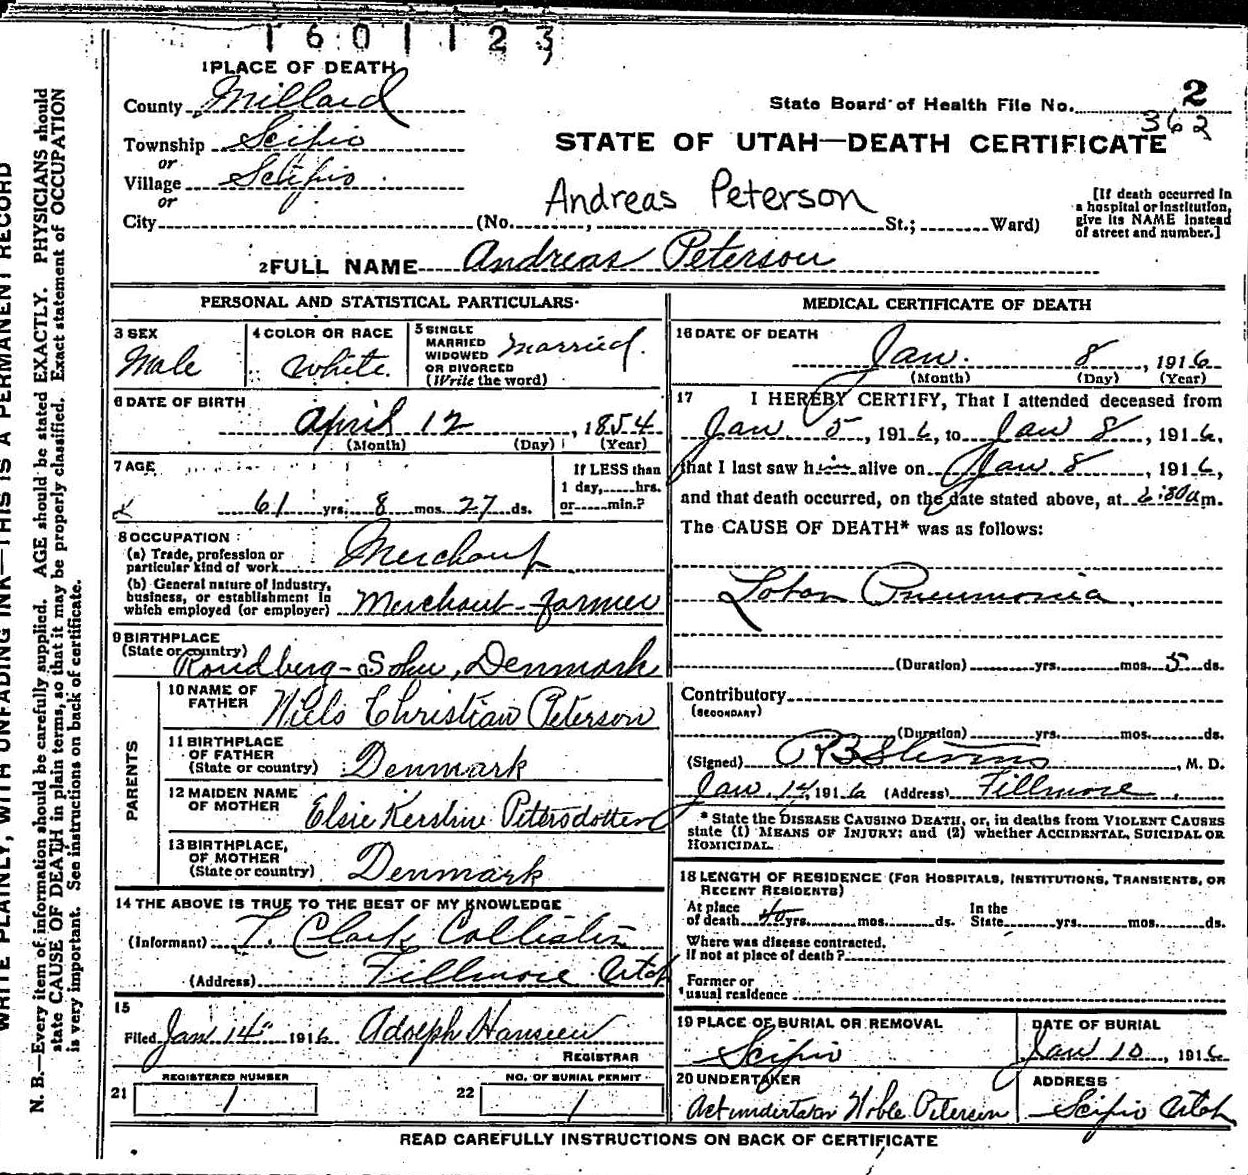 1601123
1 PLACE OF DEATH
County Millard
State Board of Health File No. 2
362
Township Scipio
or
STATE OF UTAH—DEATH CERTIFICATE
Village Scipio
or
Andreas Peterson
City (No. , St.; Ward)
[If death occurred in
a hospital or institution,
give its NAME instead
of street and number.]
2 FULL NAME Andreas Peterson
PERSONAL AND STATISTICAL PARTICULARS
3 SEX
Male
4 COLOR OR RACE
White
5 SINGLE
MARRIED
WIDOWED
OR DIVORCED
(Write the word)
Married.
6 DATE OF BIRTH
April 12, 1854
(Month) (Day) (Year)
7 AGE
61 yrs. 8 mos. 27 ds.
If LESS than
1 day, hrs.
or min.?
8 OCCUPATION
(a) Trade, profession or
particular kind of work Merchant
(b) General nature of industry,
business, or establishment in
which employed (or employer) Merchant-farmer
9 BIRTHPLACE
(State or country)
Denmark
PARENTS
10 NAME OF
FATHER
Niels Christian Peterson
11 BIRTHPLACE
OF FATHER
(State or country) Denmark
12 MAIDEN NAME
OF MOTHER
Elsie Kerstine
13 BIRTHPLACE,
OF MOTHER
(State or country) Denmark
14 THE ABOVE IS TRUE TO THE BEST OF MY KNOWLEDGE
(Informant) T. Clark Callister
(Address) Fillmore Utah
15
Filed Jan 14" 1916 Adolph Hansen
REGISTRAR
REGISTERED NUMBER
21 1
NO. OF BURIAL PERMIT
22 1
MEDICAL CERTIFICATE OF DEATH
16 DATE OF DEATH
Jan. 8, 1916
(Month) (Day) (Year)
17 I HEREBY CERTIFY, That I attended deceased from
Jan. 5, 1916, to Jan 8, 1916,
that I last saw him alive on Jan 8, 1916,
and that death occurred, on the date stated above, at 2:30am.
The CAUSE OF DEATH* was as follows:
Lobar Pneumonia.
(Duration) yrs. mos. 5 ds.
Contributory
(SECONDARY)
(Duration) yrs. mos. ds.
(Signed) , M. D.
Jan. 14, 1916 (Address) Fillmore
* State the DISEASE CAUSING DEATH, or, in deaths from VIOLENT CAUSES
state (1) MEANS OF INJURY; and (2) whether ACCIDENTAL, SUICIDAL OR
HOMICIDAL.
18 LENGTH OF RESIDENCE (FOR HOSPITALS, INSTITUTIONS, TRANSIENTS, OR
RECENT RESIDENTS)
At place
of death 40 yrs. mos. ds.
In the
State yrs. mos. ds.
Where was disease contracted,
If not at place of death?
Former or
usual residence
19 PLACE OF BURIAL OR REMOVAL
Scipio
DATE OF BURIAL
Jan 10, 1916
20 UNDERTAKER
Act undertaker Noble Peterson
ADDRESS
Scipio Utah
READ CAREFULLY INSTRUCTIONS ON BACK OF CERTIFICATE
WRITE PLAINLY, WITH UNFADING INK—THIS IS A PERMANENT RECORD
N. B.—Every item of information should be carefully supplied. AGE should be stated EXACTLY. PHYSICIANS should
state CAUSE OF DEATH in plain terms, so that it may be properly classified. Exact statement of OCCUPATION
is very important. See instructions on back of certificate.